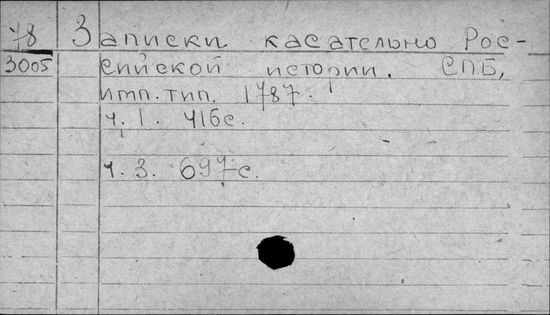 48 Записки касательно Рос-
3005 сийской истории. СПБ,
имп. тип. 1787.
ч. 1. 416с.
ч. 3. 697с.